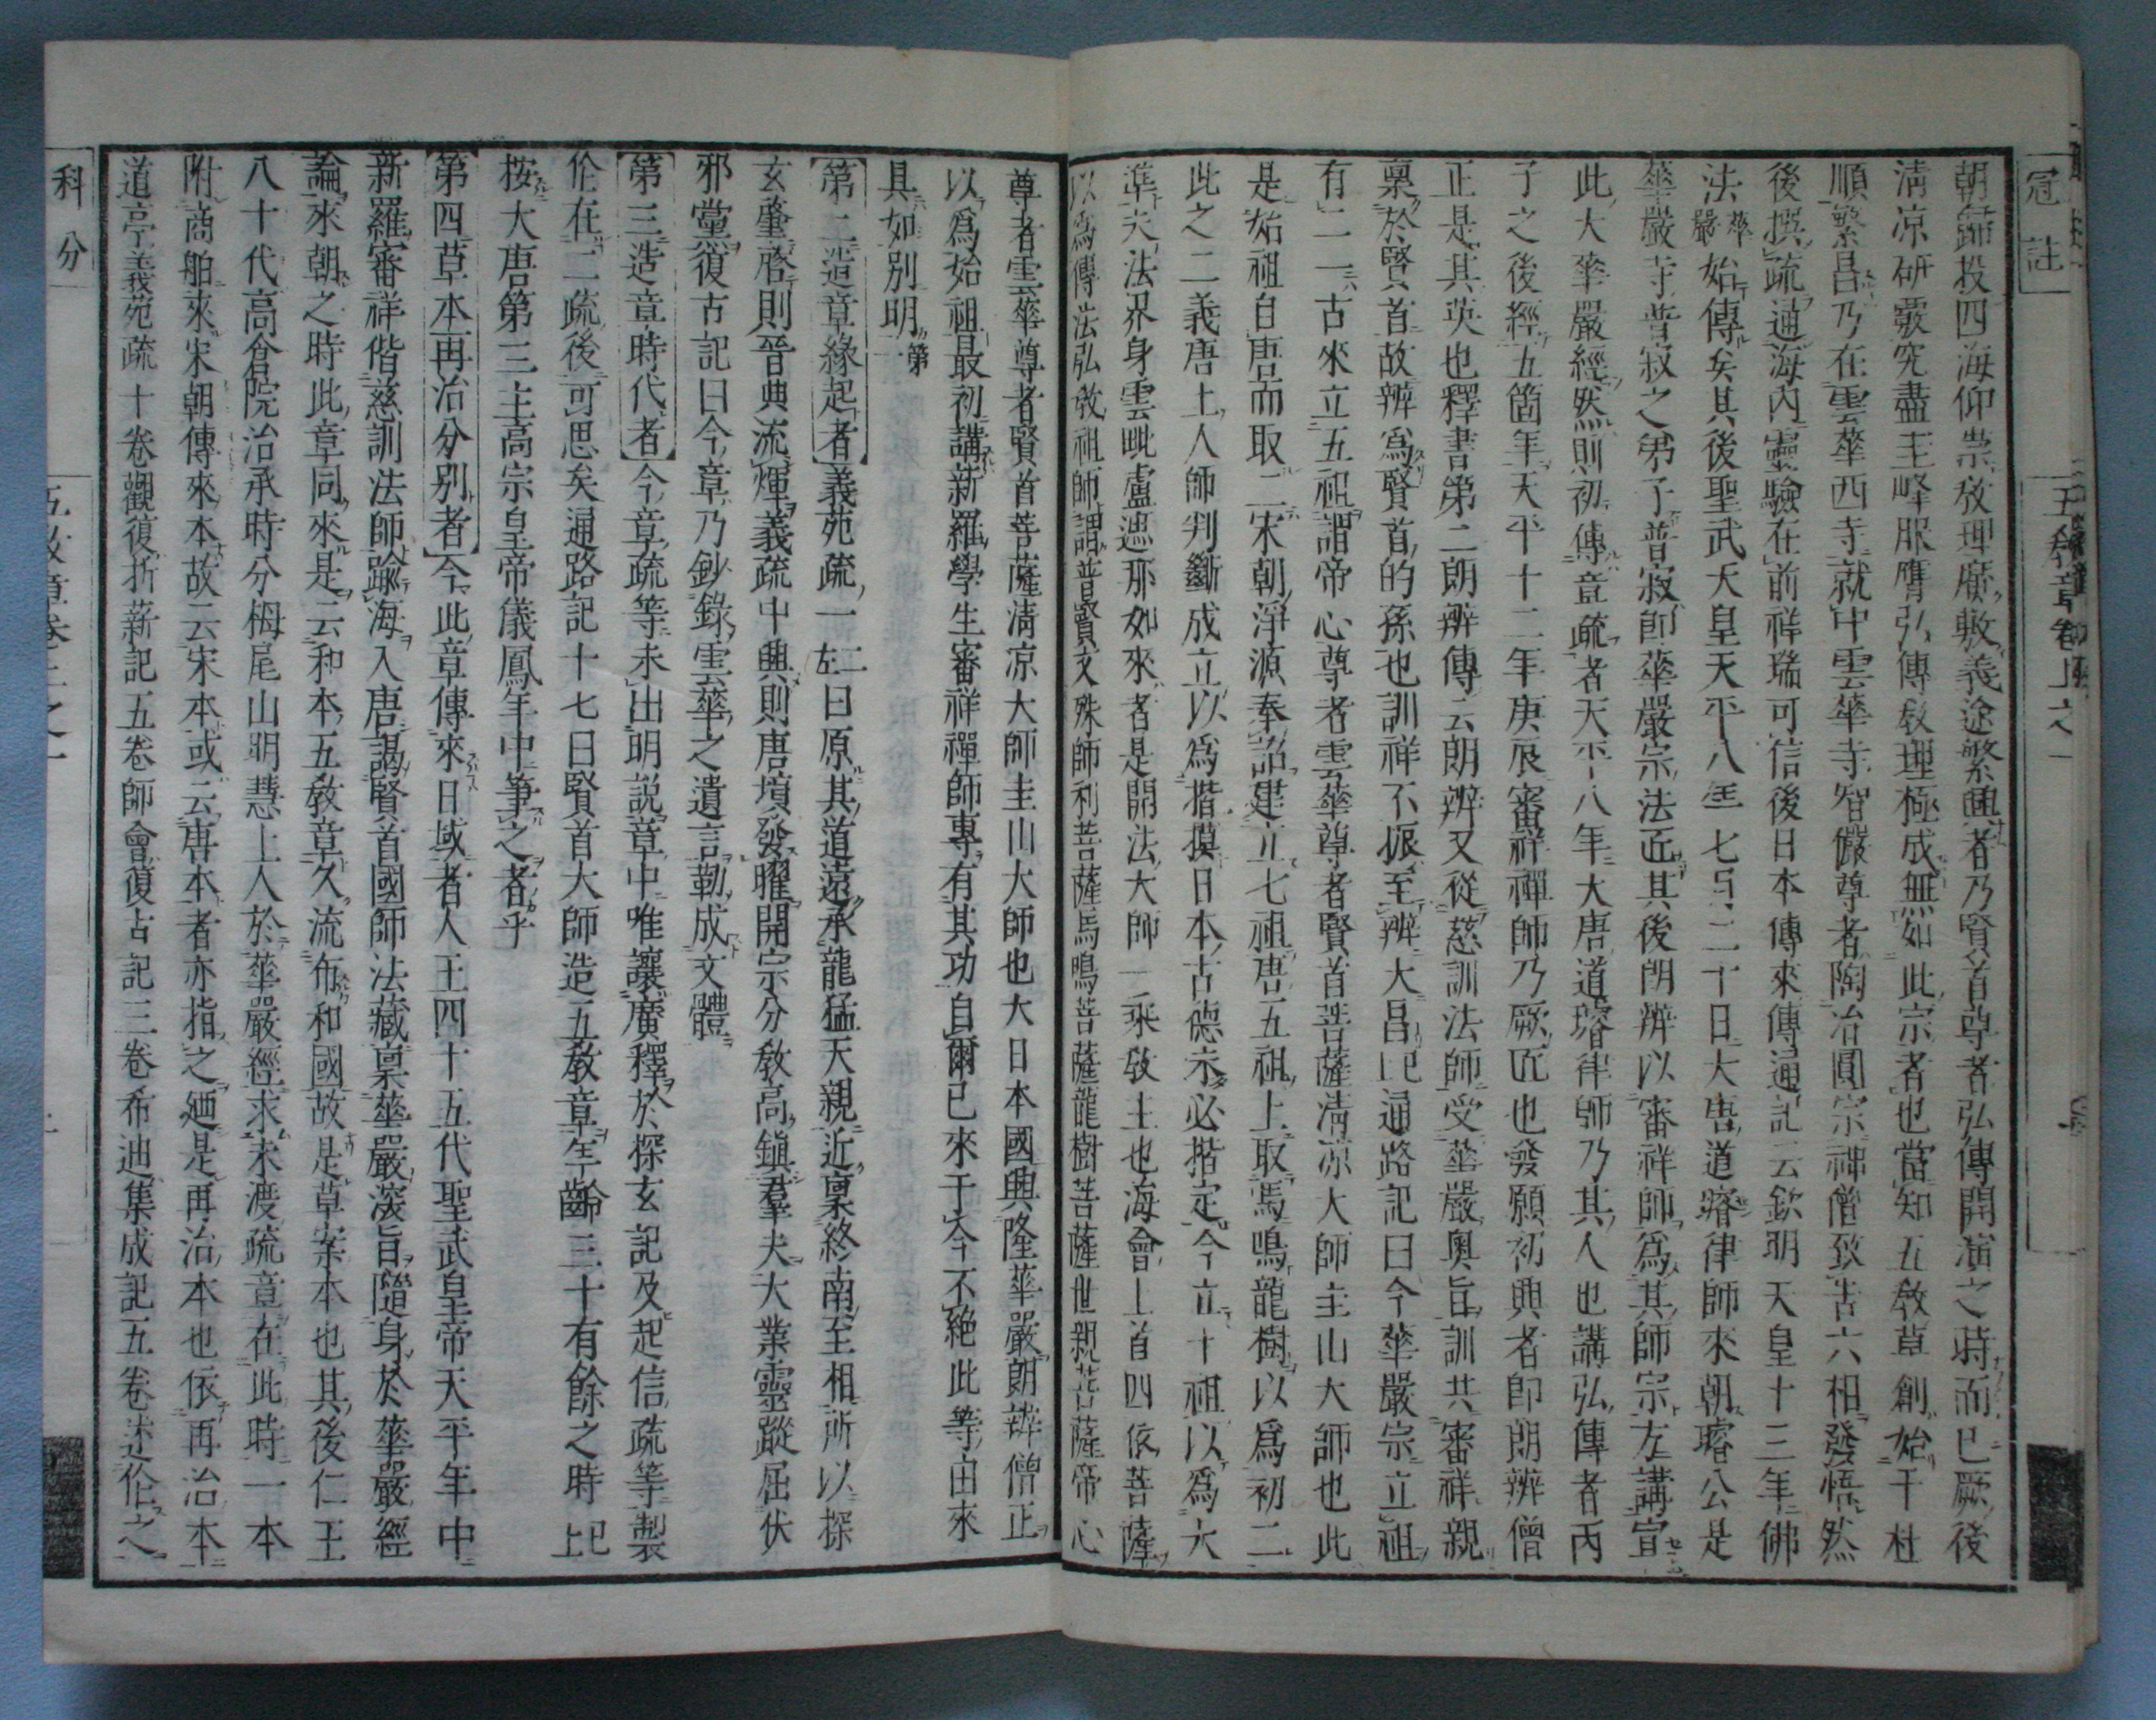 冠註
五敎章卷上之一
朝歸投四海仰崇敎理廢敷義途繁興者乃賢首尊者弘傳開演之時而已厥後
淸凉硏覈究盡圭峰服膺弘傳敎理極成無如此宗者也當知五敎草創始于杜
順繁昌乃在雲華西寺就中雲華寺智儼尊者陶冶圓宗神僧致告六相發悟然
後撰疏通海內靈驗在前祥瑞可信後日本傳來傳通記云欽明天皇十三年佛
法華嚴始傳矣其後聖武天皇天平八年七月二十日大唐道璿律師來朝璿公是
華嚴寺普寂之弟子普寂卽華嚴宗法匠其後朗辨以審祥師爲其師宗方講宣
此大華嚴經然則初傳章疏者天平八年大唐道璿律師乃其人也講弘傳者丙
子之後經五箇年天平十二年庚辰審祥禪師乃厥匠也發願初興者卽朗辨僧
正是其英也釋書第二朗辨傳云朗辨又從慈訓法師受華嚴奧旨訓共審祥親
稟於賢首故辨爲賢首的孫也訓祥不振至辨大昌已通路記曰今華嚴宗立祖
有二一古來立五祖謂帝心尊者雲華尊者賢首菩薩淸凉大師圭山大師也此
是始祖自唐而取二宋朝淨源奉詔建立七祖唐五祖上取馬鳴龍樹以爲初二
此之二義唐土人師判斷成立以爲揩摸日本古德未必揩定今立十祖以爲大
準夫法界身雲毗盧遮那如來者是開法大師一乘敎主也海會上首四依菩薩
以爲傳法弘敎祖師謂普賢文殊師利菩薩馬鳴菩薩龍樹菩薩世親菩薩帝心
尊者雲華尊者賢首菩薩淸凉大師圭山大師也大日本國興隆華嚴朗辨僧正
以爲始祖最初講新羅學生審祥禪師專有其功自爾已來于今不絕此等由來
具如別明第一
第二造章緣起者義苑疏一二左曰原其道遠承龍猛天親近稟終南至相所以探
玄肇啓則晉典流煇義疏中興則唐墳發曜開宗分敎高鎭羣夫大業靈蹤屈伏
邪黨復古記曰今章乃鈔錄雲華之遺言勒成文體
第三造章時代者今章疏等未出明說章中唯讓廣釋於探玄記及起信疏等製
作在二疏後可思矣通路記十七曰賢首大師造五敎章年齡三十有餘之時已上
按大唐第三主高宗皇帝儀鳳年中筆之者乎
第四草本再治分別者今此章傳來日域者人王四十五代聖武皇帝天平年中
新羅審祥偕慈訓法師踰海入唐謁賢首國師法藏稟華嚴深旨隨身於華嚴經
論來朝之時此章同來是云和本五敎章久流布和國故是草案本也其後仁王
八十代高倉院治承時分栂尾山明慧上人於華嚴經求未渡疏章在此時一本
附商舶來宋朝傳來本故云宋本或云唐本者亦指之廼是再治本也依再治本
道亭義苑疏十卷觀復折薪記五卷師會復古記三卷希迪集成記五卷述作之
科分
五敎章卷上之一